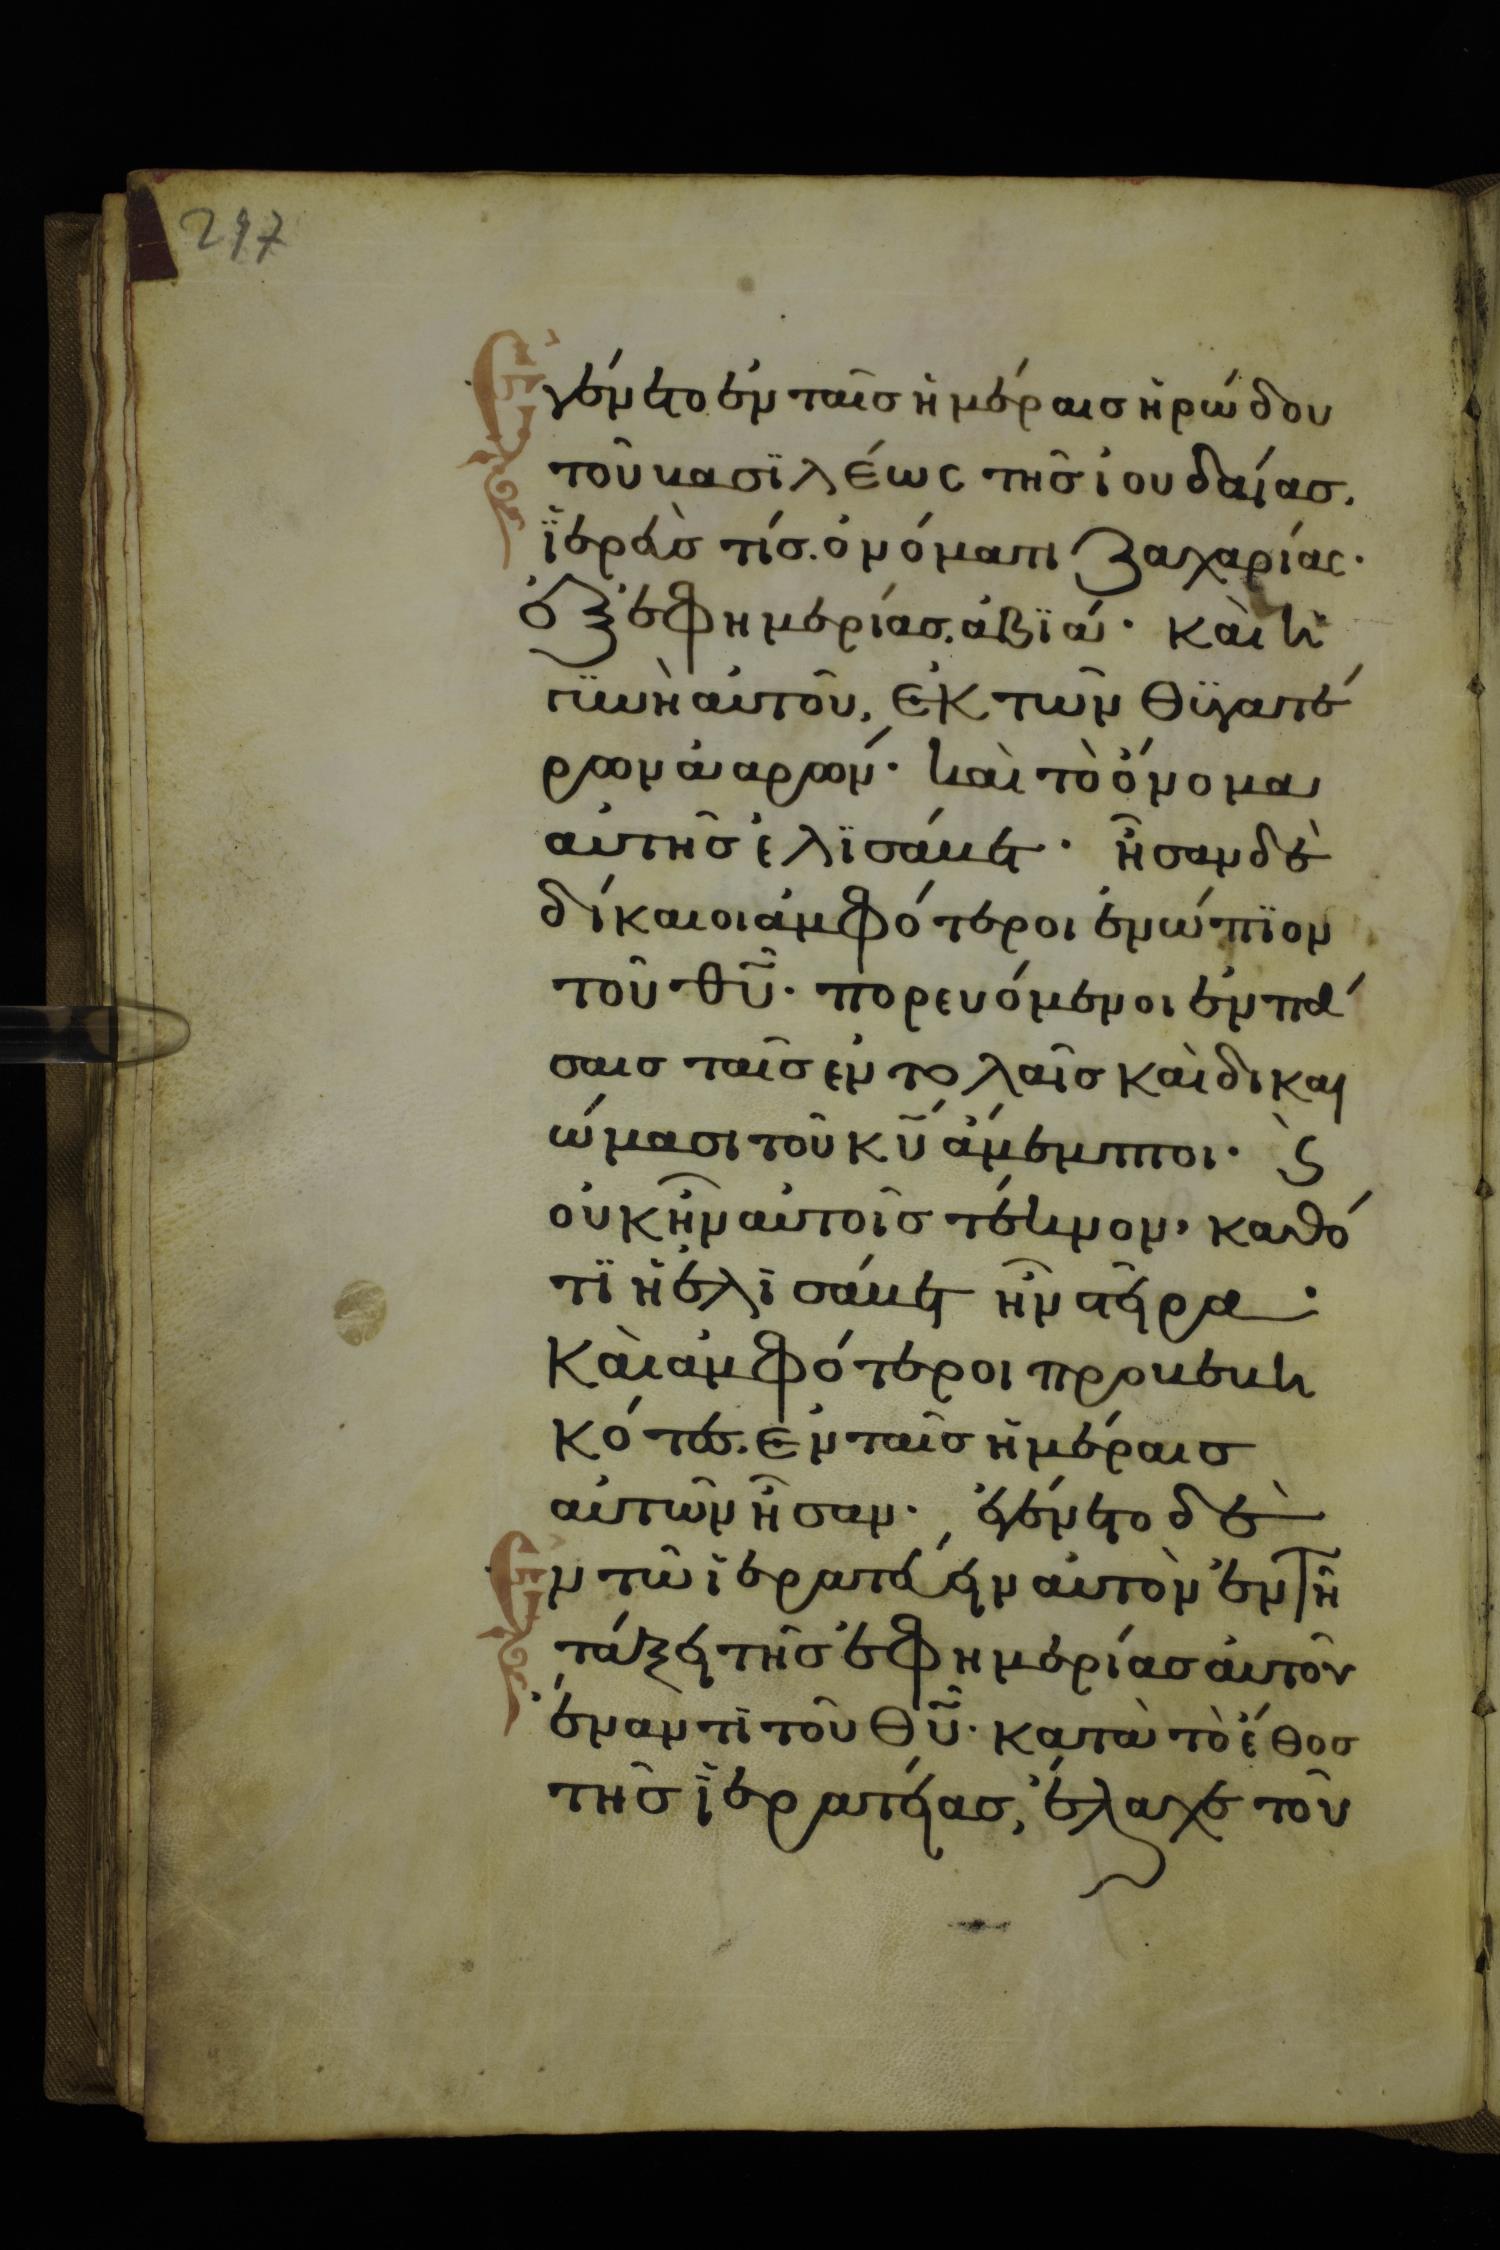 297
Ἐγένετο ἐν ταῖς ἡμέραις ἡρώδου
τοῦ βασϊλέως τῆς ἰουδαίας.
ἱ̈ερεὺς τίς. ὀνόματι Ζαχαρίας·
ἐξ ἐφημερίας. ἀβϊά· καὶ ἡ
γϋνὴ αὐτοῦ, ἐκ τῶν θϋγατέ
ρων ἀαρών· καὶ τὸ ὄνομα
αὐτῆς ἐλϊσάβετ· ἦσαν δὲ
δίκαιοι ἀμφότεροι ἐνώπϊον
τοῦ θ̅υ̅· πορευόμενοι ἐν πά
σαις ταῖς ἐντολαῖς καὶ δικαι
ώμασι τοῦ κ̅υ̅ ἄμεμπτοι· ϗ̀
οὐκ ἦν αὐτοῖς τέκνον· καθό
τϊ ἡ ἐλισάβετ ἦν στεῖρα·
Καὶ ἀμφότεροι προβεβη
κότες. ἐν ταῖς ἡμέραις
αὐτῶν ἦσαν· ἐγένετο δὲ
Ἐν τῶ ἱερατεύειν αὐτὸν ἐν τῆ
τάξει τῆς ἐφημερίας αὐτοῦ
ἔναντι τοῦ θ̅υ̅· κατὰ τὸ ἔθος
τῆς ἱερατείας, ἔλαχε τοῦ